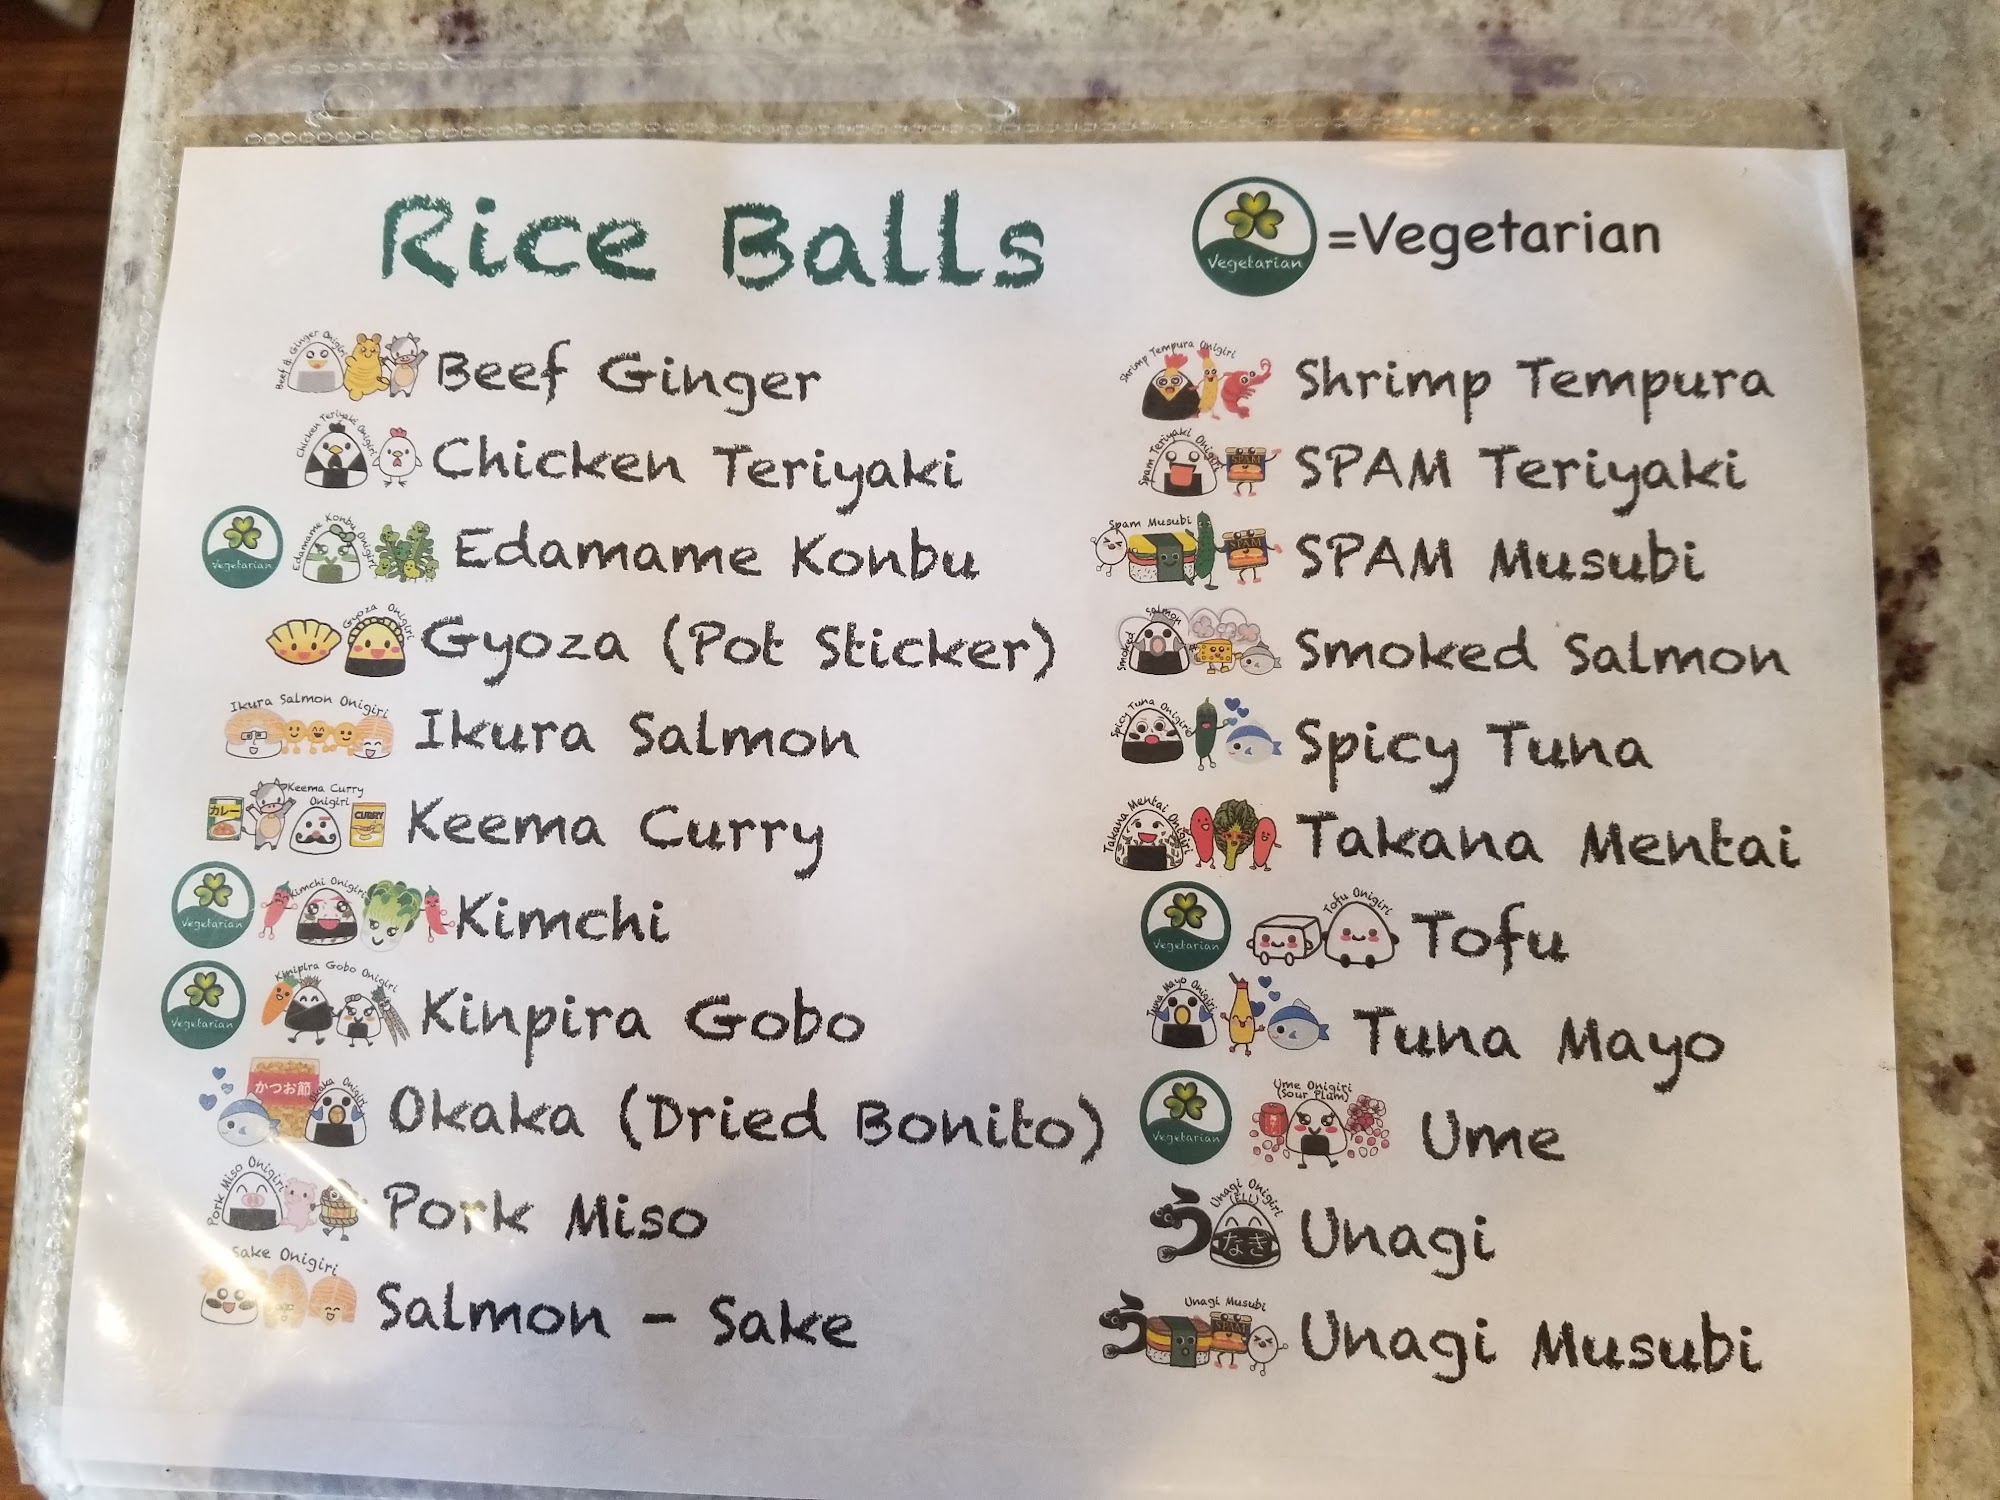 Rice Balls
Vegetarian
=Vegetarian
Beef & Ginger Onigiri
Beef Ginger
Chicken Teriyaki Onigiri
Chicken Teriyaki
Vegetarian
Edamame Konbu Onigiri
Edamame Konbu
Gyoza Onigiri
Gyoza (Pot Sticker)
Ikura Salmon Onigiri
Ikura Salmon
カレー
Keema Curry
Onigiri
CURRY
Keema Curry
Vegetarian
Kimchi Onigiri
Kimchi
Vegetarian
Kinipira Gobo Onigiri
Kinpira Gobo
かつお節
Okaka Onigiri
Okaka (Dried Bonito)
Pork Miso Onigiri
Pork Miso
Sake Onigiri
Salmon - Sake
Shrimp Tempura Onigiri
Shrimp Tempura
Spam Teriyaki Onigiri
SPAM
SPAM Teriyaki
Spam Musubi
SPAM
SPAM Musubi
Smoked Salmon
Smoked Salmon
Spicy Tuna Onigiri
Spicy Tuna
Takana Mentai Onigiri
Takana Mentai
Vegetarian
Tofu Onigiri
Tofu
Tuna Mayo Onigiri
Tuna Mayo
Vegetarian
Ume Onigiri
(Sour Plum)
Ume
Unagi Onigiri
(ELL)
う
なぎ
Unagi
Unagi Musubi
う
SPAM
Unagi Musubi